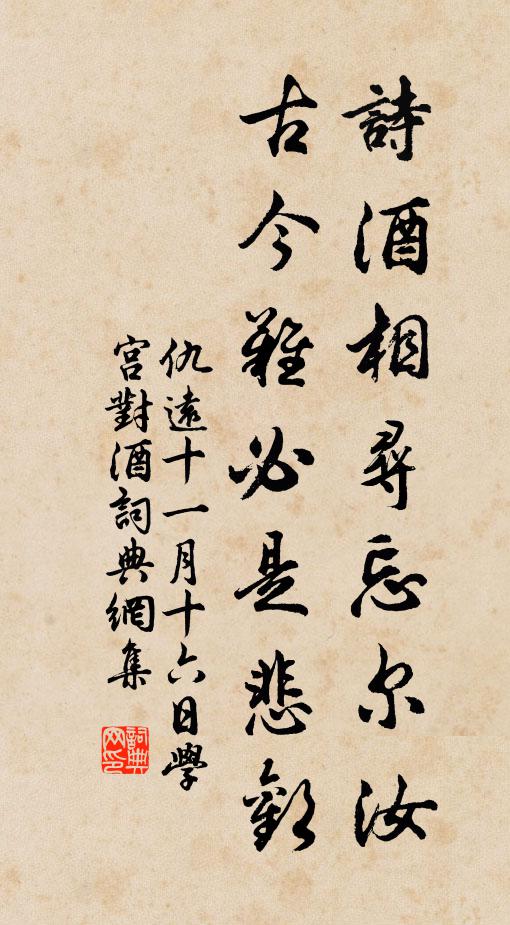 詩酒相尋忘尔汝
古今難必是悲歡
仇遠十一月十六日學
宫對酒詞典網集
詞典网印